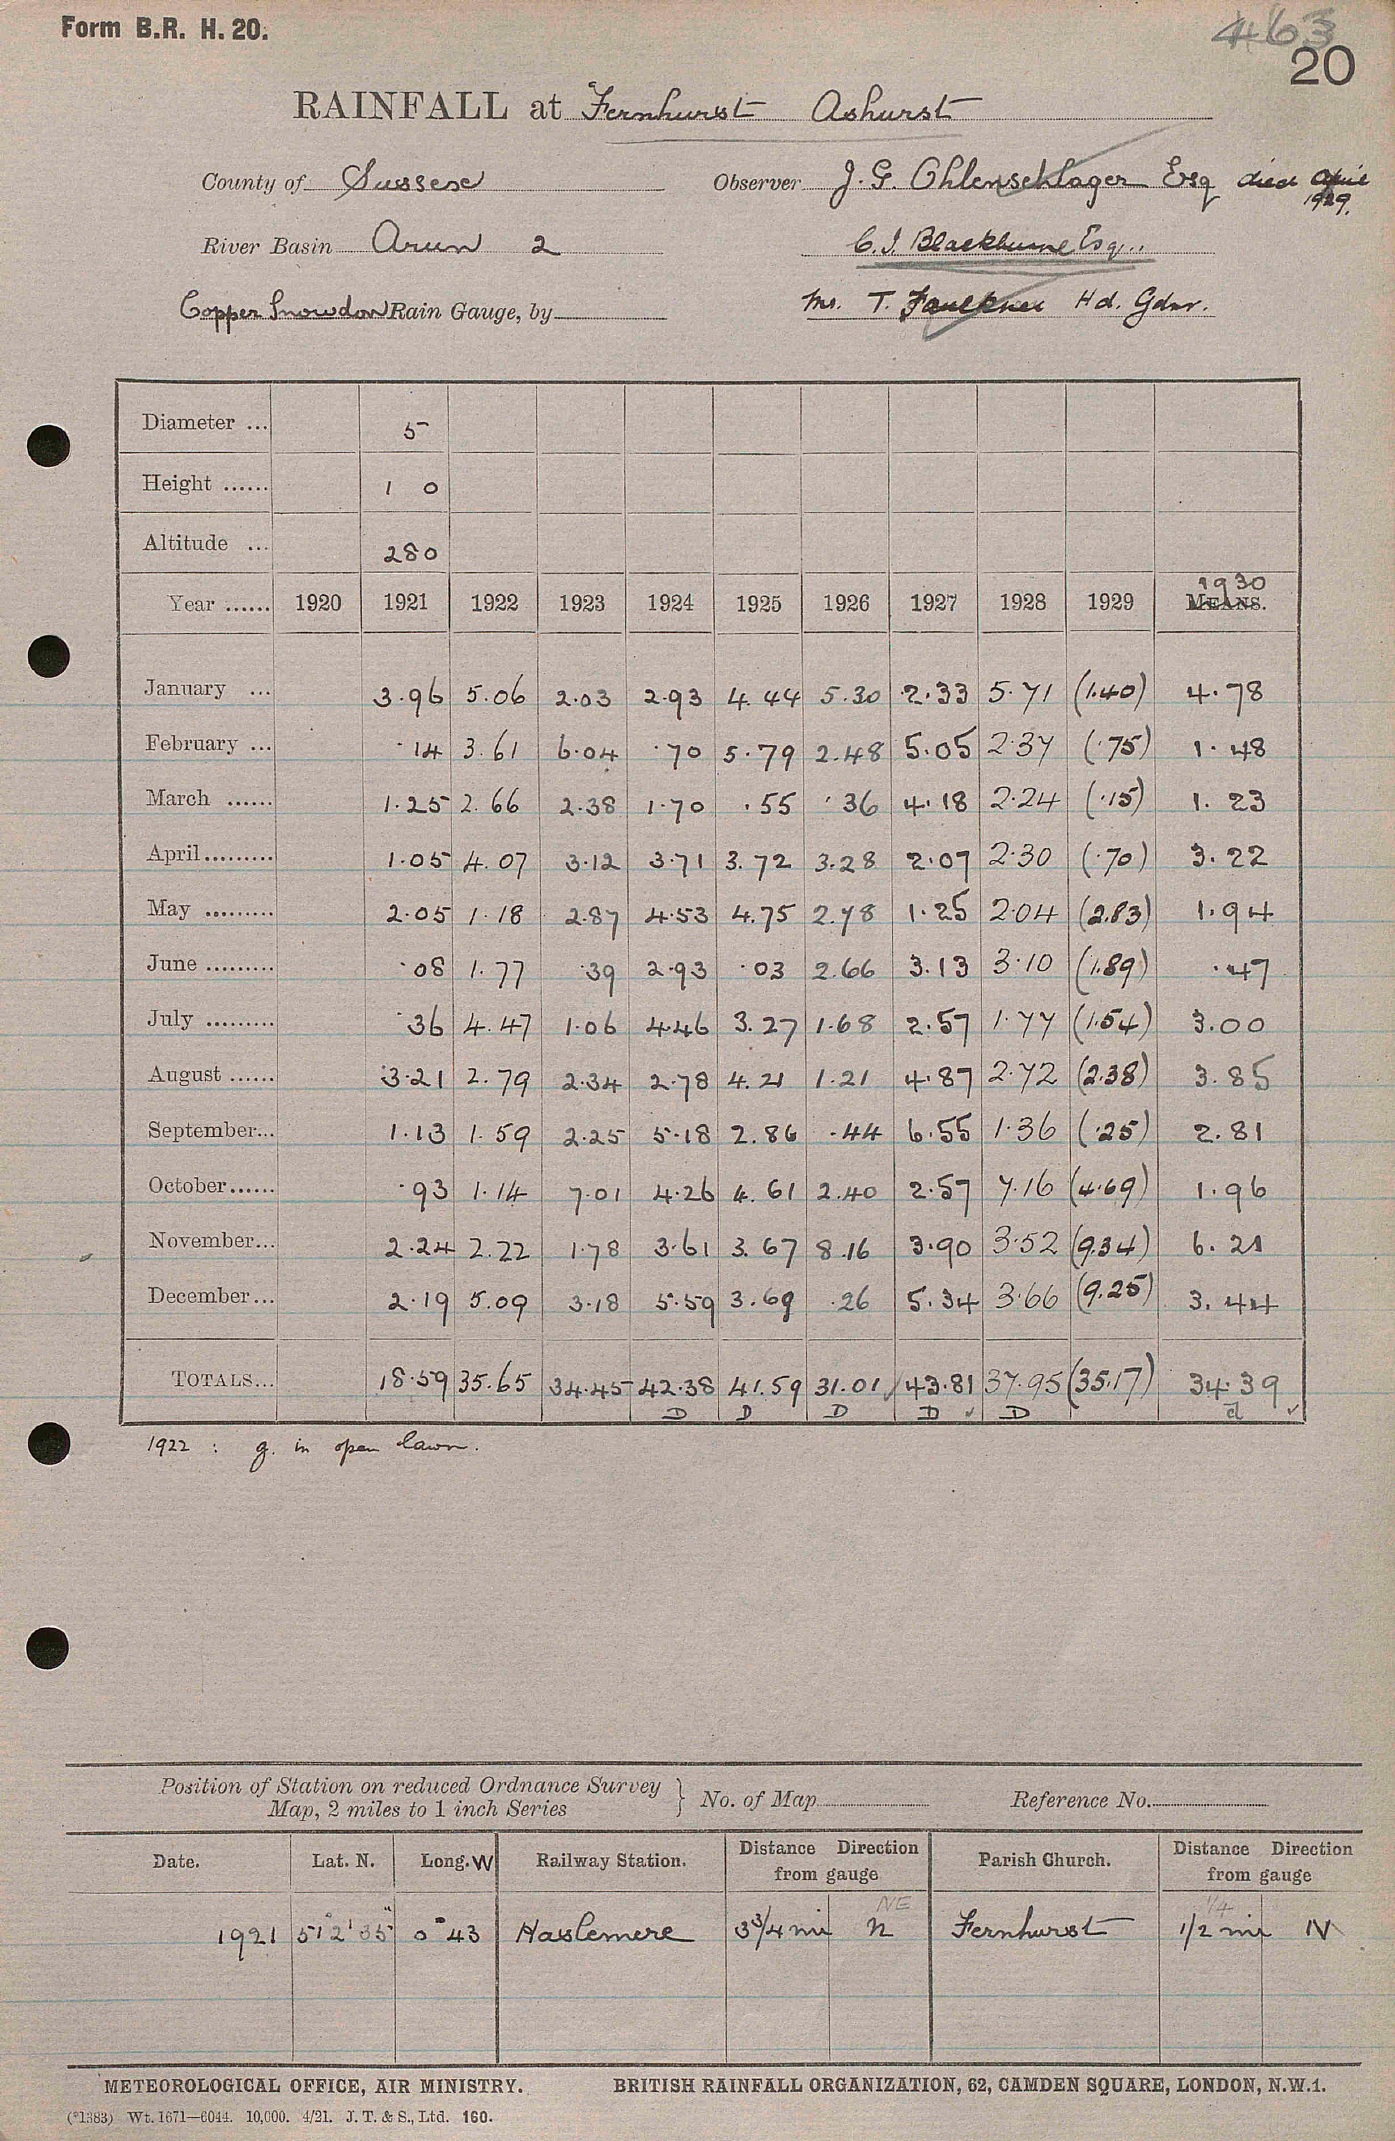 Form B.R. H. 20.
463
20
RAINFALL at Fernhurst Ashurst
County of Sussex Observer J. G. Ohlenschlager Esq died April 1929.
River Basin Arun 2 C. I. Blackburne Esq..
Copper Snowdon Rain Gauge, by Mr. T. Faulkner Hd. Gdnr.
Diameter ... 5
Height ...... 1 0
Altitude ... 280
1930
Year ...... 1920 1921 1922 1923 1924 1925 1926 1927 1928 1929 MEANS.
January ... 3.96 5.06 2.03 2.93 4.44 5.30 2.33 5.71 (1.40) 4.78
February ... .14 3.61 6.04 .70 5.79 2.48 5.05 2.37 (.75) 1.48
March ...... 1.25 2.66 2.38 1.70 .55 .36 4.18 2.24 (.15) 1.23
April......... 1.05 4.07 3.12 3.71 3.72 3.28 2.07 2.30 (.70) 3.22
May ......... 2.05 1.18 2.87 4.53 4.75 2.78 1.25 2.04 (2.83) 1.94
June ......... .08 1.77 .39 2.93 .03 2.66 3.13 3.10 (1.89) .47
July ......... .36 4.47 1.06 4.46 3.27 1.68 2.57 1.77 (1.54) 3.00
August ...... 3.21 2.79 2.34 2.78 4.21 1.21 4.87 2.72 (2.38) 3.85
September... 1.13 1.59 2.25 5.18 2.86 .44 6.55 1.36 (.25) 2.81
October...... .93 1.14 7.01 4.26 4.61 2.40 2.57 7.16 (4.69) 1.96
November... 2.24 2.22 1.78 3.61 3.67 8.16 3.90 3.52 (9.34) 6.21
December... 2.19 5.09 3.18 5.59 3.69 .26 5.34 3.66 (9.25) 3.44
TOTALS... 18.59 35.65 34.45 42.38 41.59 31.01 43.81 37.95 (35.17) 34.39
D D D D ✓ D d ✓
1922 : g. in open lawn.
Position of Station on reduced Ordnance Survey
Map, 2 miles to 1 inch Series } No. of Map Reference No.
Date. Lat. N. Long. W Railway Station. Distance Direction from gauge Parish Church. Distance Direction from gauge
NE 1/4
1921 51° 2' 35" 0° 43 Haslemere 3 3/4 mi N Fernhurst 1/2 mi N
METEOROLOGICAL OFFICE, AIR MINISTRY. BRITISH RAINFALL ORGANIZATION, 62, CAMDEN SQUARE, LONDON, N.W.1.
(*1383) Wt. 1671—6044. 10,000. 4/21. J. T. & S., Ltd. 160.